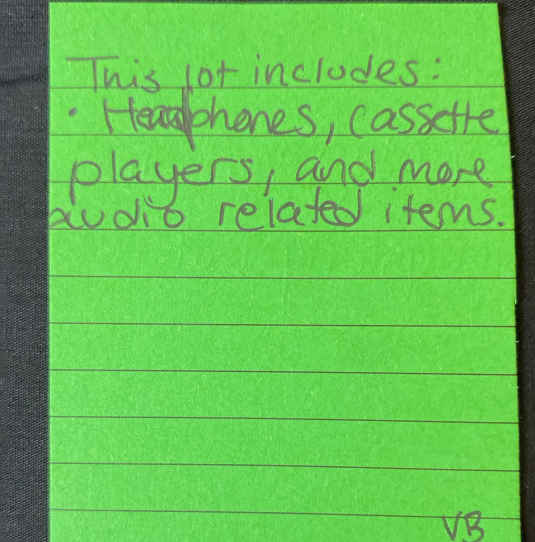 This lot includes:
• Headphones, cassette
players, and more
audio related items.
VB